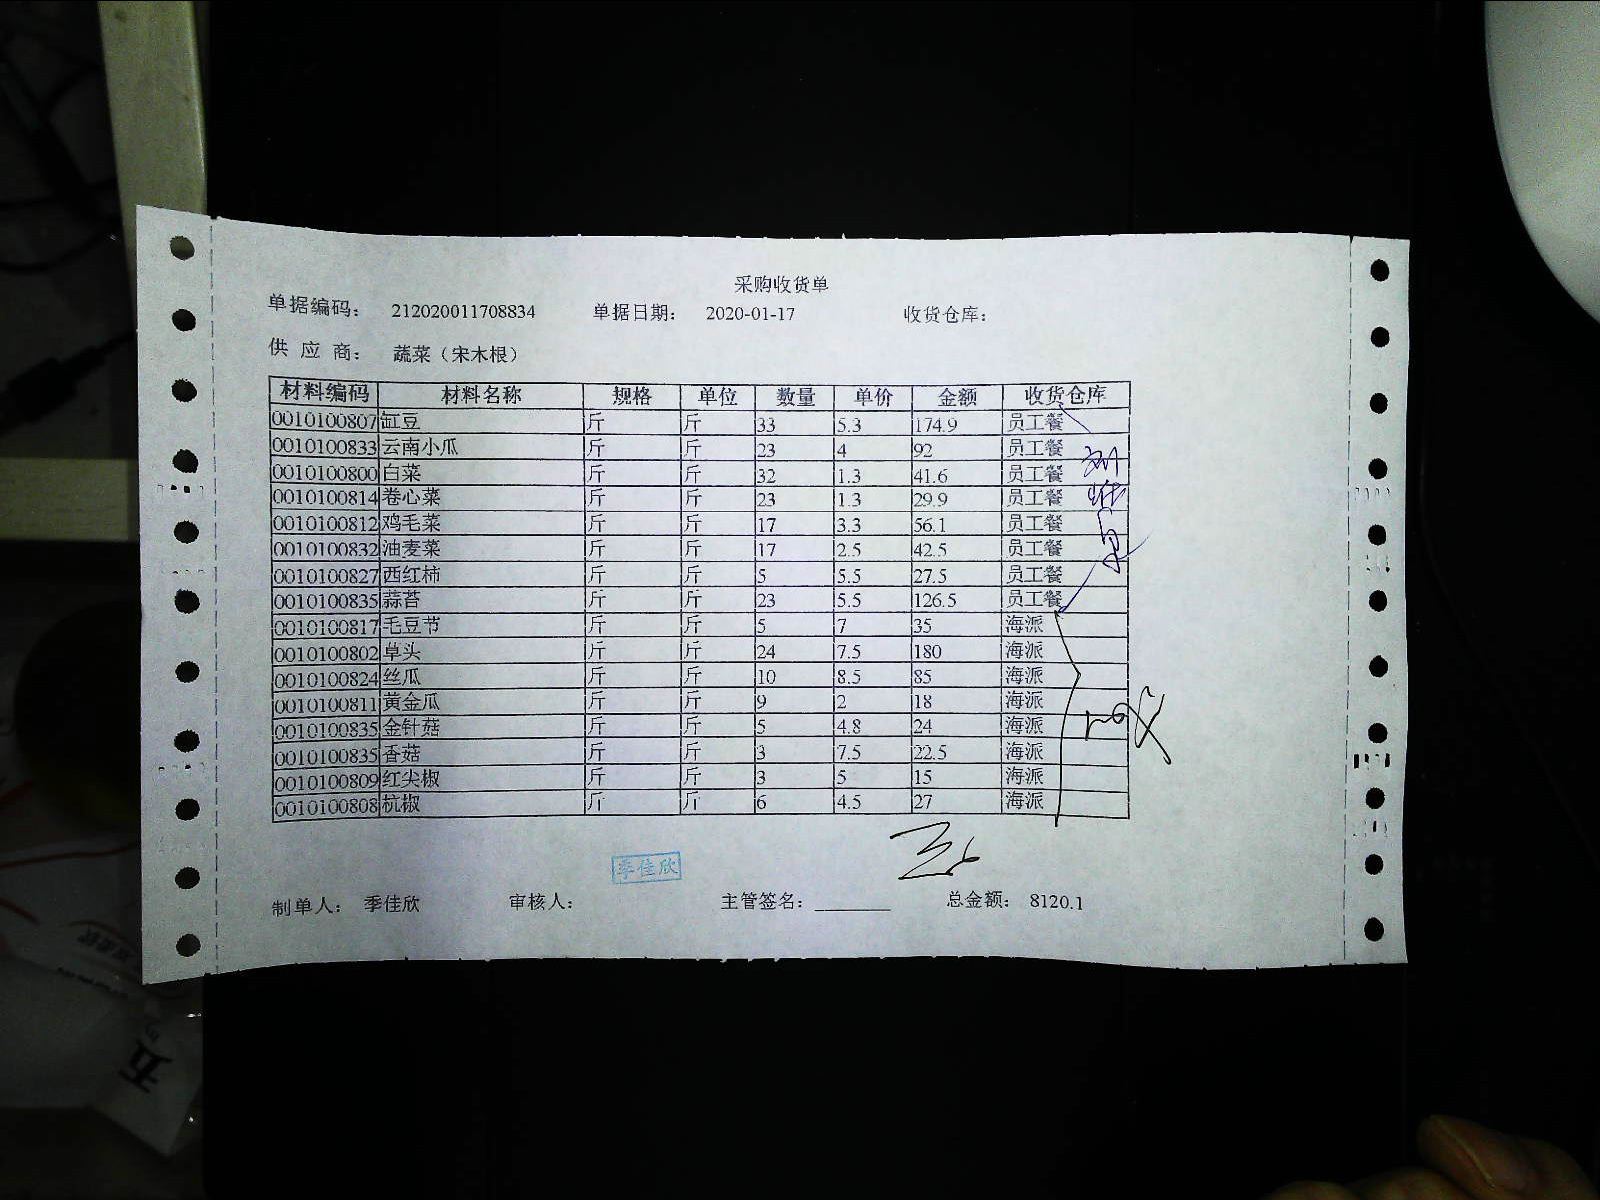 采购收货单
单据编码： 212020011708834 单据日期： 2020-01-17 收货仓库：
供 应 商： 蔬菜（宋木根）
材料编码 材料名称 规格 单位 数量 单价 金额 收货仓库
0010100807 缸豆 斤 斤 33 5.3 174.9 员工餐
0010100833 云南小瓜 斤 斤 23 4 92 员工餐
0010100800 白菜 斤 斤 32 1.3 41.6 员工餐
0010100814 卷心菜 斤 斤 23 1.3 29.9 员工餐
0010100812 鸡毛菜 斤 斤 17 3.3 56.1 员工餐
0010100832 油麦菜 斤 斤 17 2.5 42.5 员工餐
0010100827 西红柿 斤 斤 5 5.5 27.5 员工餐
0010100835 蒜苔 斤 斤 23 5.5 126.5 员工餐
0010100817 毛豆节 斤 斤 5 7 35 海派
0010100802 草头 斤 斤 24 7.5 180 海派
0010100824 丝瓜 斤 斤 10 8.5 85 海派
0010100811 黄金瓜 斤 斤 9 2 18 海派
0010100835 金针菇 斤 斤 5 4.8 24 海派
0010100835 香菇 斤 斤 3 7.5 22.5 海派
0010100809 红尖椒 斤 斤 3 5 15 海派
0010100808 杭椒 斤 斤 6 4.5 27 海派
季佳欣
制单人： 季佳欣 审核人： 主管签名： 总金额： 8120.1
五